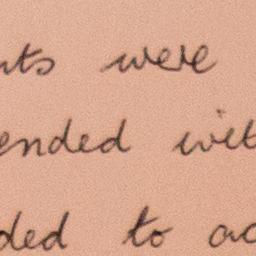 nts were
ended wit
ded to ac